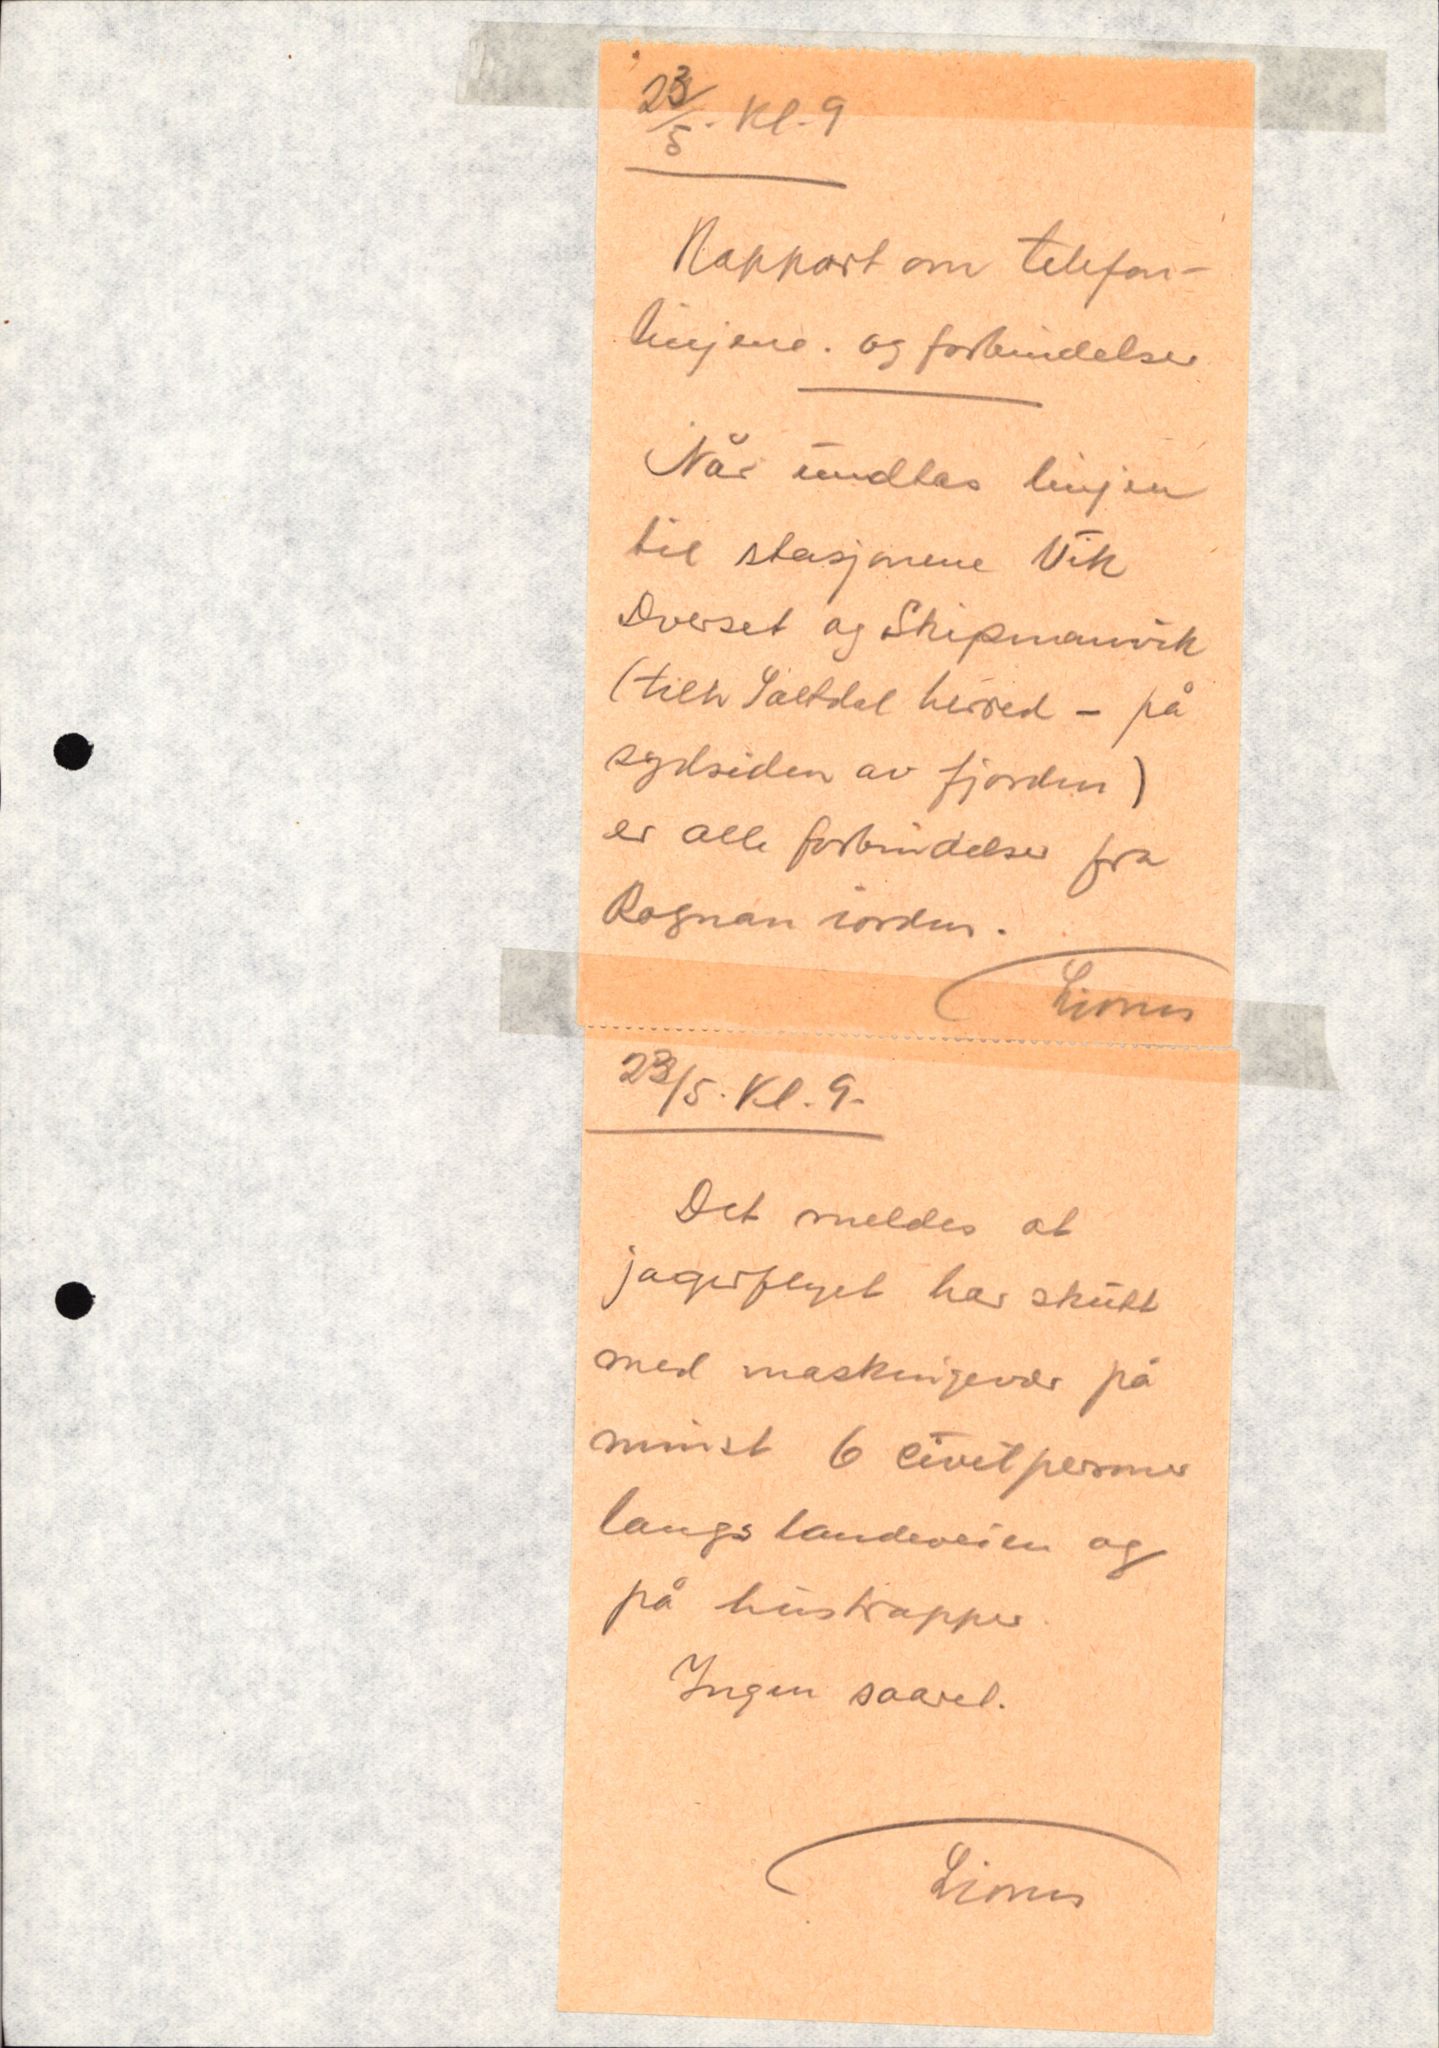 23/5. Kl. 9
Rapport om telefon-
linjene. og forbindelser
Når undtas linjen
til stasjonene Vik
Dverset og Skipmannvik
(tilh Saltdal herred - på
sydsiden av fjorden)
er alle forbindelser fra
Rognan iorden.
23/5. Kl. 9.
Det meldes at
jagerflyet har skutt
med maskingevær på
minst 6 civilpersoner
langs landeveien og
på hustrapper.
Ingen saaret.